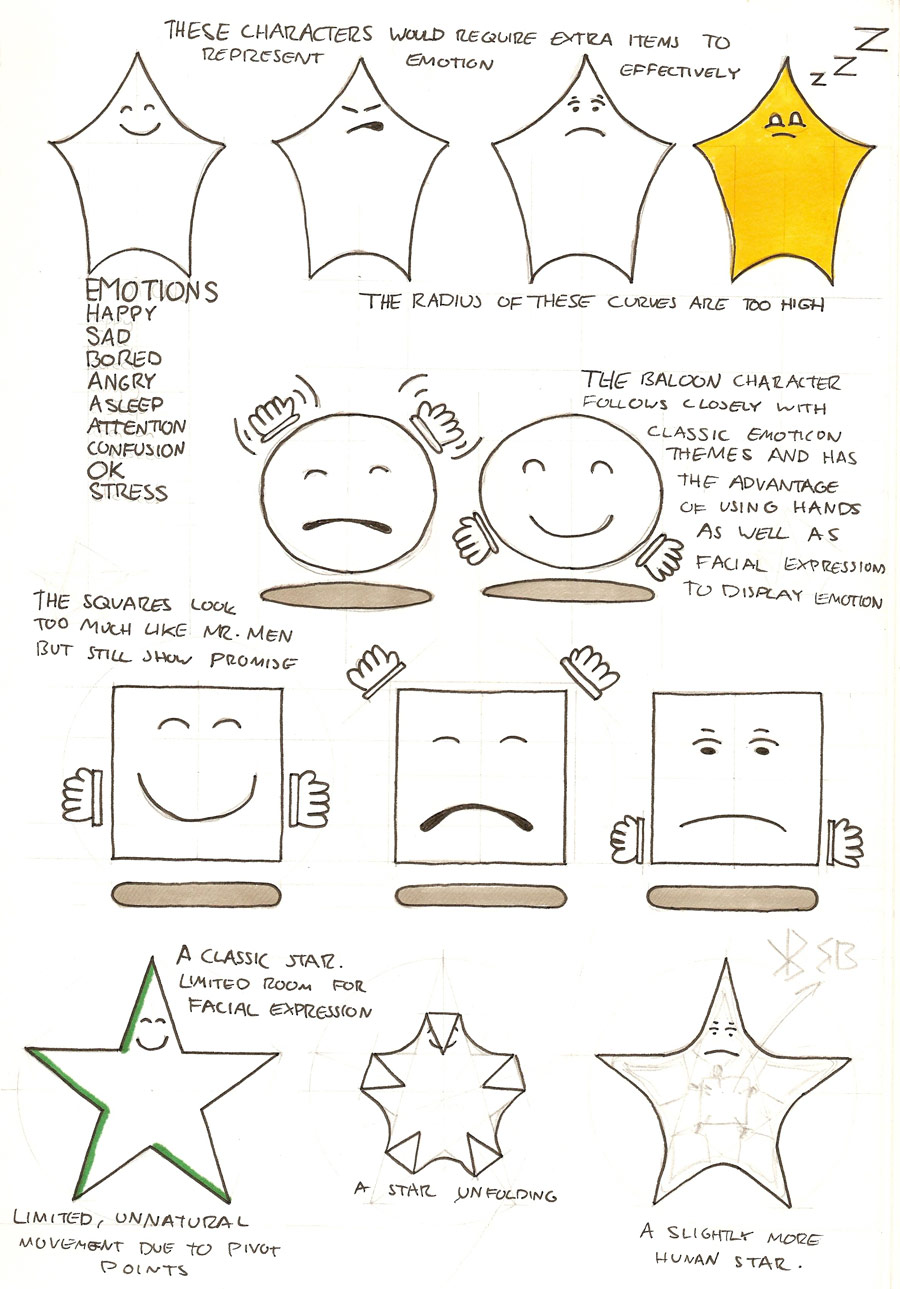 THESE CHARACTERS WOULD REQUIRE EXTRA ITEMS TO
REPRESENT EMOTION EFFECTIVELY
Z Z Z
EMOTIONS
HAPPY
SAD
BORED
ANGRY
ASLEEP
ATTENTION
CONFUSION
OK
STRESS
THE RADIUS OF THESE CURVES ARE TOO HIGH
THE BALOON CHARACTER
FOLLOWS CLOSELY WITH
CLASSIC EMOTICON
THEMES AND HAS
THE ADVANTAGE
OF USING HANDS
AS WELL AS
FACIAL EXPRESSIONS
TO DISPLAY EMOTION
THE SQUARES LOOK
TOO MUCH LIKE MR. MEN
BUT STILL SHOW PROMISE
A CLASSIC STAR.
LIMITED ROOM FOR
FACIAL EXPRESSION
LIMITED, UNNATURAL
MOVEMENT DUE TO PIVOT
POINTS
A STAR UNFOLDING
A SLIGHTLY MORE
HUMAN STAR.